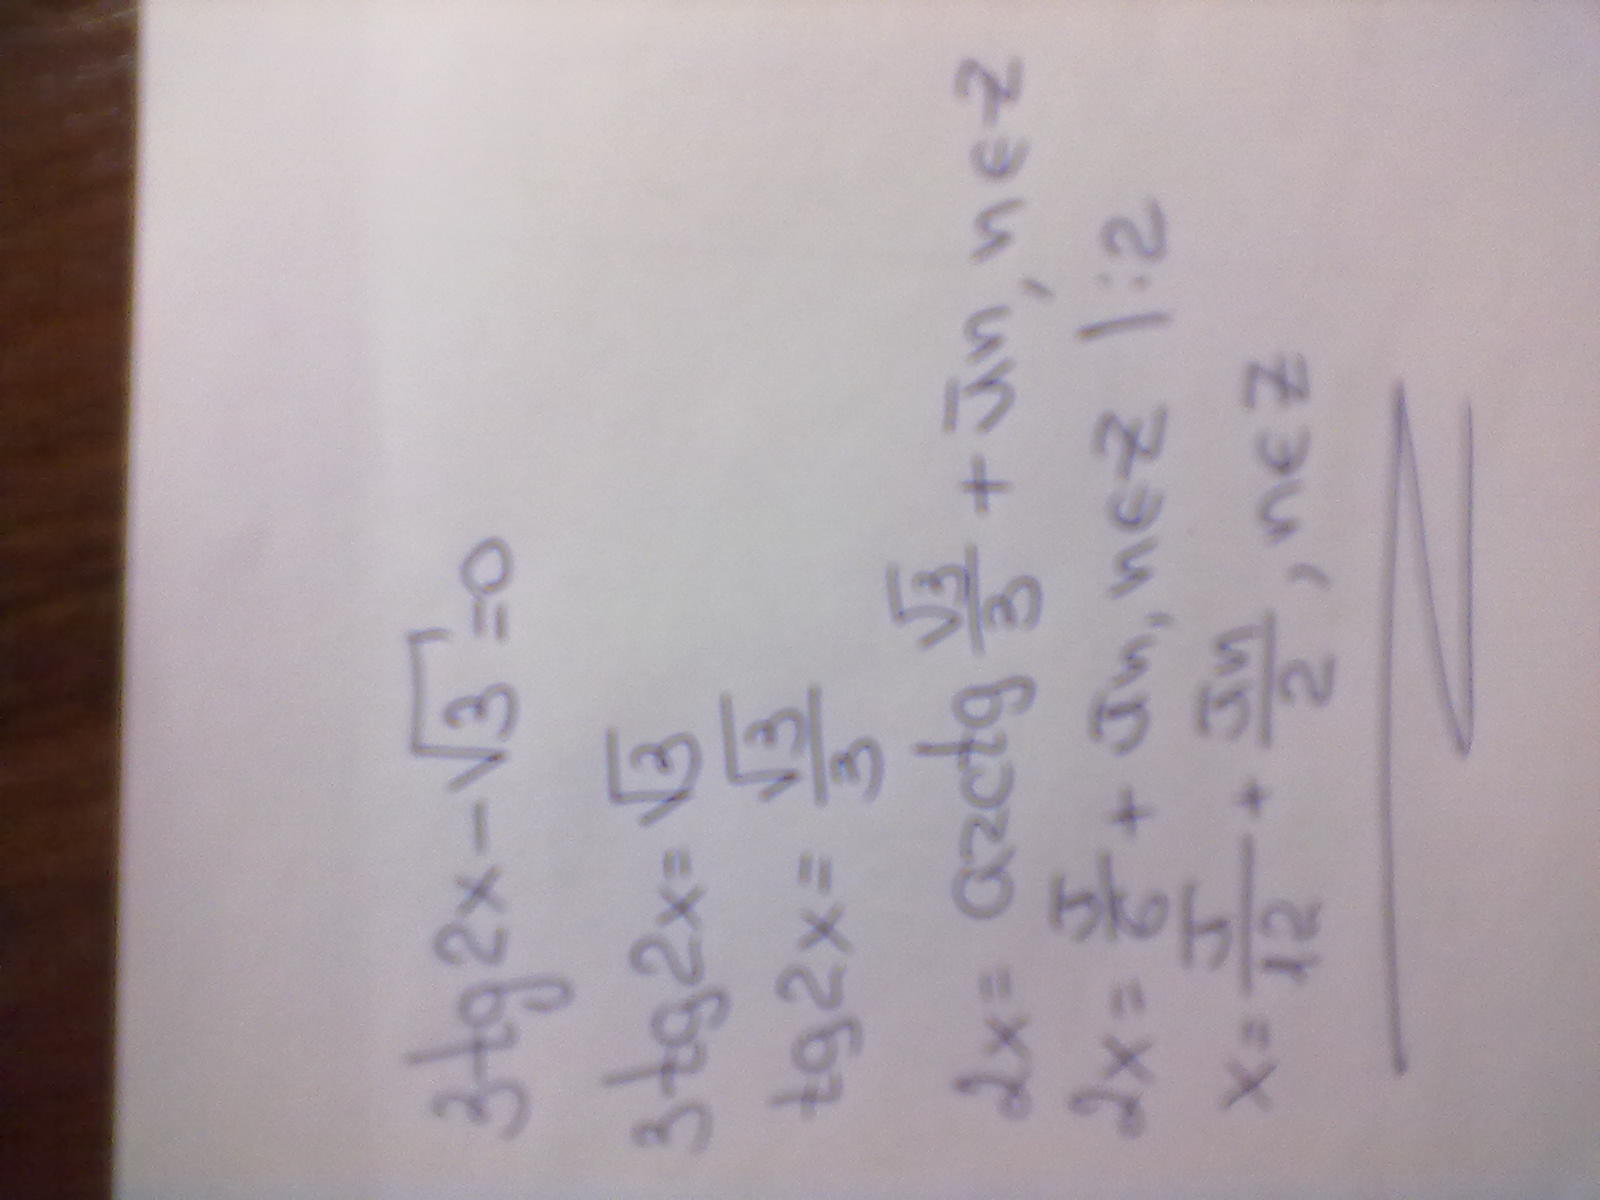 3tg2x-√3=0
3tg2x=√3
tg2x=√3/3
2x= arctg √3/3 + πn, n∈Z
2x= π/6 + πn, n∈Z |:2
x= π/12 + πn/2, n∈Z